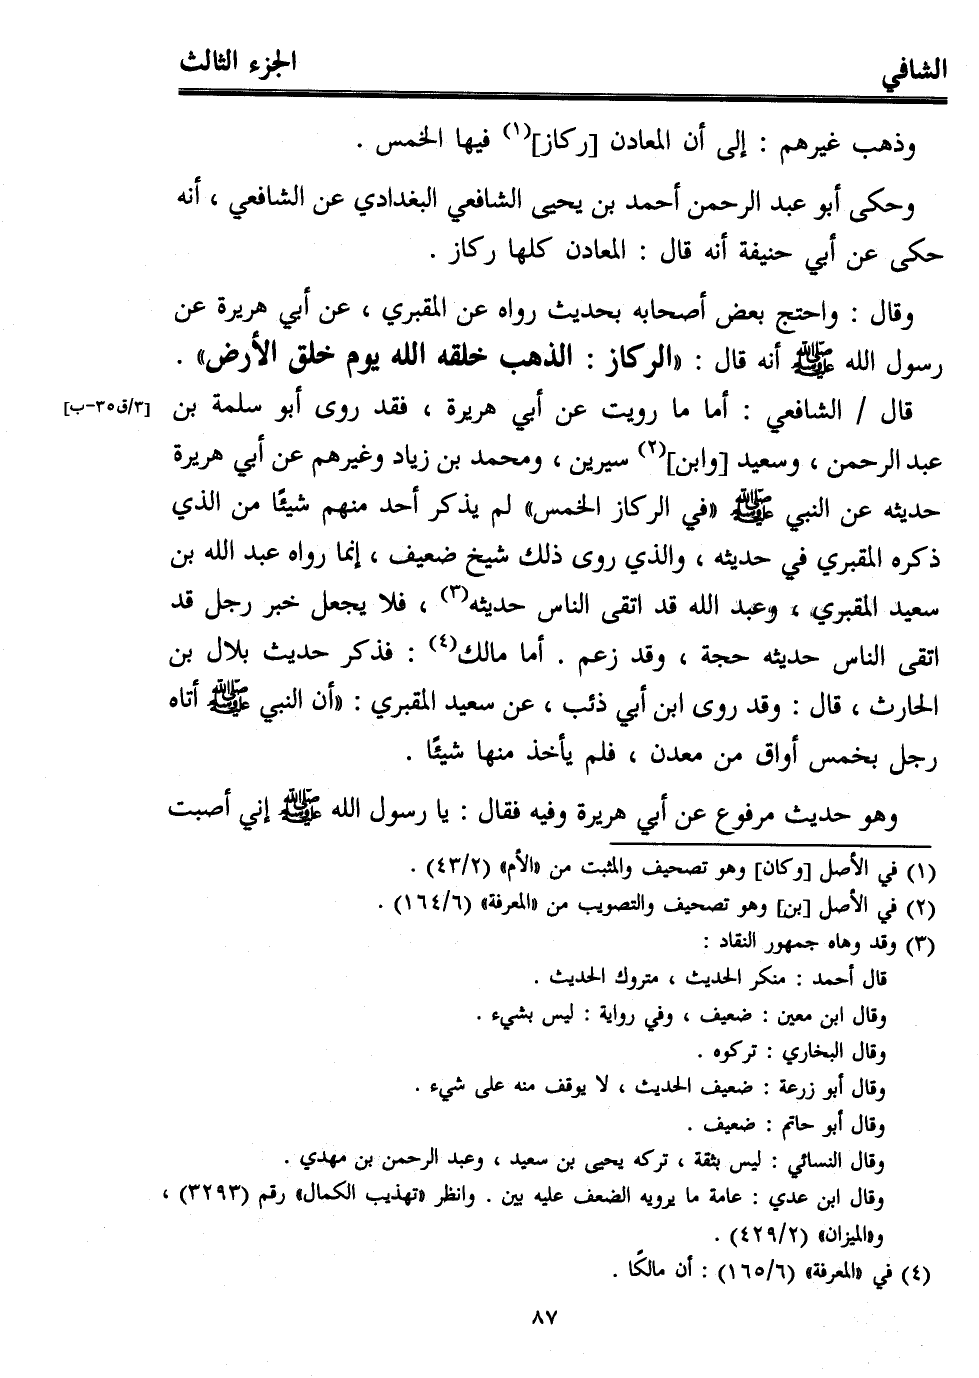 الشافي
الجزء الثالث
وذهب غيرهم : إلى أن المعادن [ركاز](١) فيها الخمس .
وحكى أبو عبد الرحمن أحمد بن يحيى الشافعي البغدادي عن الشافعي ، أنه
حكى عن أبي حنيفة أنه قال : المعادن كلها ركاز .
وقال : واحتج بعض أصحابه بحديث رواه عن المقبري ، عن أبي هريرة عن
رسول الله ﷺ أنه قال : «الركاز : الذهب خلقه الله يوم خلق الأرض» .
قال / الشافعي : أما ما رويت عن أبي هريرة ، فقد روى أبو سلمة بن [٣/ق٣٥-ب]
عبد الرحمن ، وسعيد [وابن](٢) سيرين ، ومحمد بن زياد وغيرهم عن أبي هريرة
حديثه عن النبي ﷺ «في الركاز الخمس» لم يذكر أحد منهم شيئًا من الذي
ذكره المقبري في حديثه ، والذي روى ذلك شيخ ضعيف ، إنما رواه عبد الله بن
سعيد المقبري ، وعبد الله قد اتقى الناس حديثه(٣) ، فلا يجعل خبر رجل قد
اتقى الناس حديثه حجة ، وقد زعم . أما مالك(٤) : فذكر حديث بلال بن
الحارث ، قال : وقد روى ابن أبي ذئب ، عن سعيد المقبري : «أن النبي ﷺ أتاه
رجل بخمس أواق من معدن ، فلم يأخذ منها شيئًا .
وهو حديث مرفوع عن أبي هريرة وفيه فقال : يا رسول الله ﷺ إني أصبت
(١) في الأصل [وكان] وهو تصحيف والمثبت من «الأم» (٤٣/٢) .
(٢) في الأصل [بن] وهو تصحيف والتصويب من «المعرفة» (١٦٤/٦) .
(٣) وقد وهاه جمهور النقاد :
قال أحمد : منكر الحديث ، متروك الحديث .
وقال ابن معين : ضعيف ، وفي رواية : ليس بشيء .
وقال البخاري : تركوه .
وقال أبو زرعة : ضعيف الحديث ، لا يوقف منه على شيء .
وقال أبو حاتم : ضعيف .
وقال النسائي : ليس بثقة ، تركه يحيى بن سعيد ، وعبد الرحمن بن مهدي .
وقال ابن عدي : عامة ما يرويه الضعف عليه بين . وانظر «تهذيب الكمال» رقم (٣٢٩٣) ،
و«الميزان» (٤٢٩/٢) .
(٤) في «المعرفة» (١٦٥/٦) : أن مالكًا .
٨٧